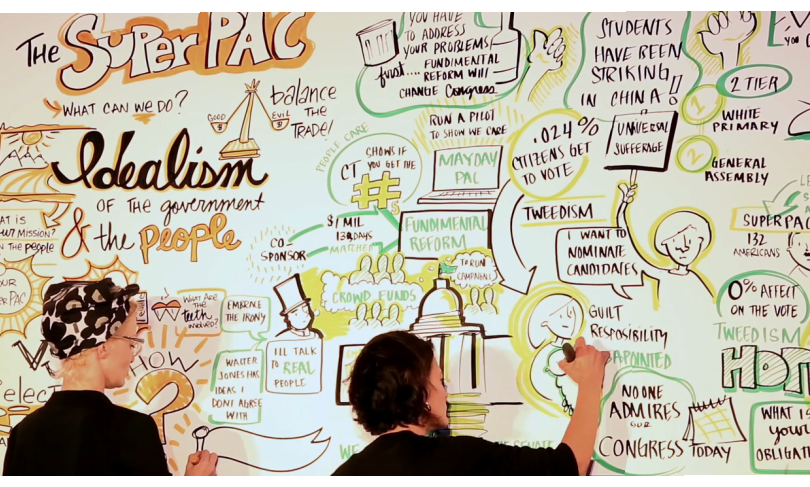 THE
SUPER PAC
WHAT CAN WE DO?
GOOD
EVIL
balance
THE
TRADE!
Idealism
OF THE government
& the people
MISSION?
THE PEOPLE
PEOPLE CARE
CHOWS IF
YOU GET THE
CT ##
$
$1 MIL
130 DAYS
MATCHED
CO-
SPONSOR
YOU HAVE
TO ADDRESS
YOUR PROBLEMS/
first.... FUNDIMENTAL
REFORM WILL
CHANGE Congress
RUN A PILOT
TO SHOW WE CARE
MAYDAY
PAC
FUNDIMENTAL
REFORM
TO RUN
CAMPAIGNS
CROWD FUNDS
WHAT ARE
THE
teeth
INVOLVED?
EMBRACE
THE IRONY
HOW
?
WALTER
JONES HAS
IDEAS I
DONT AGREE
WITH
ILL TALK
TO REAL
PEOPLE
STUDENTS
HAVE BEEN
STRIKING
IN CHINA!!
.024%
CITIZENS GET
TO VOTE
UNIVERSAL
SUFFERAGE
TWEEDISM
I WANT TO
NOMINATE
CANDIDATES
2 TIER
1
WHITE
PRIMARY
2
GENERAL
ASSEMBLY
SUPERPAC
132
AMERICANS
0% AFFECT
ON THE VOTE
TWEEDISM
GUILT
RESPOSIBILITY
APPOINTED
NO ONE
ADMIRES
OUR
CONGRESS TODAY
WHAT IS
your
WE
SENATE